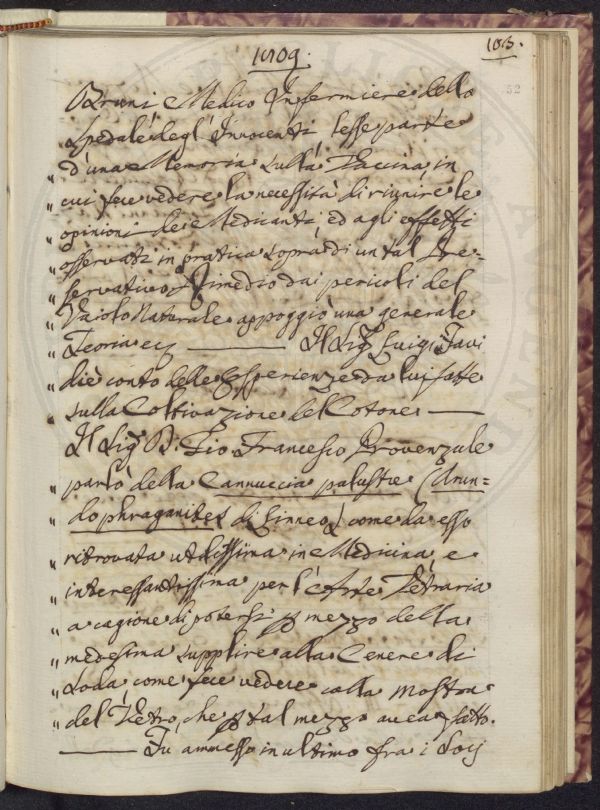 1809.
103.
52
Bruni Medico Infermiere dello
Spedale degl' Innocenti lesse parte
d'una Memoria sulla Vaccina, in
" cui fece vedere la necessità di riunire le
" opinioni de' Medicanti, ed agli effetti
" osservati in pratica sopra di un tal Pre=
" servativo, Rimedio dai pericoli del
" Vaiolo Naturale appoggiò una generale
" Teoria ec. Il Sig.r Luigi Tavi
" diè conto delle Esperienze da lui fatte
" sulla Coltivazione del Cotone.
Il Sig.r D. Gio. Francesco Provenzale
" parlò della Cannuccia palustre (Arun=
" do phragmites di Linneo) come da esso
" ritrovata utilissima in Medicina, e
" interessantissima per l'Arte Vetraria
" a cagione di potersi p mezzo della
" medesima supplire alla Cenere di
" Soda come fece vedere colla mostra
" del Vetro, che p tal mezzo avea fatto.
Fu ammesso in ultimo fra i Socj